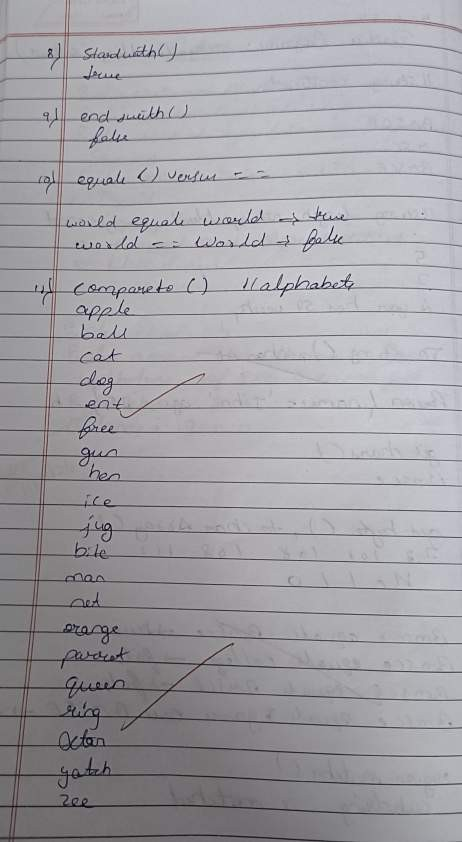 8) Startwith()
true
9) endswith()
false
10) equals () versus = =
world equals world → true
world == World → false
11) compareto () // alphabets
apple
ball
cat
dog
ent
free
gun
hen
ice
jug
bite
man
net
orange
parrot
queen
ring
yatch
zee